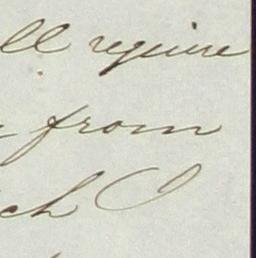 ll require
from
ch I